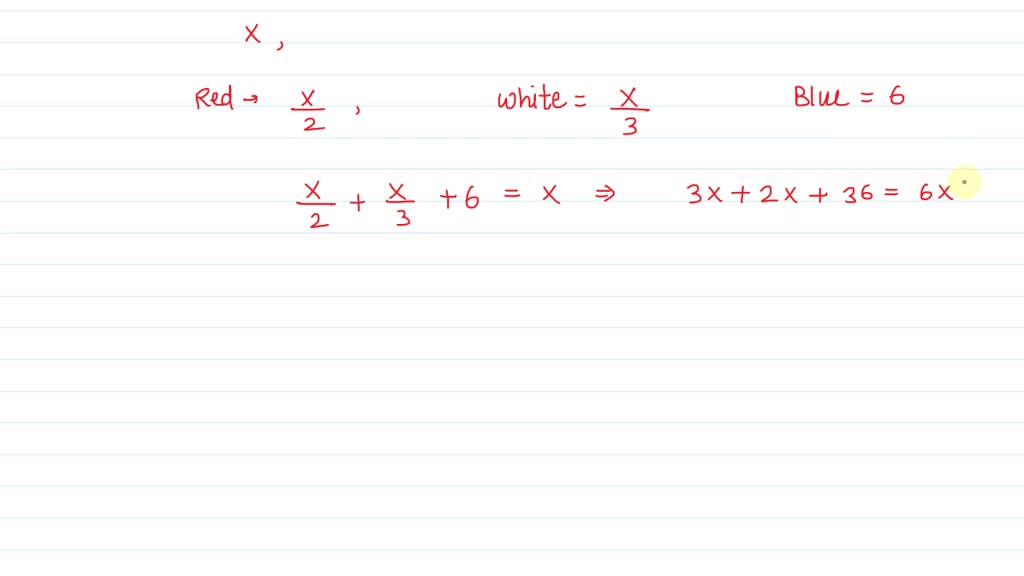 x ,
Red → x/2 , white = x/3 Blue = 6
x/2 + x/3 + 6 = x ⇒ 3x + 2x + 36 = 6x